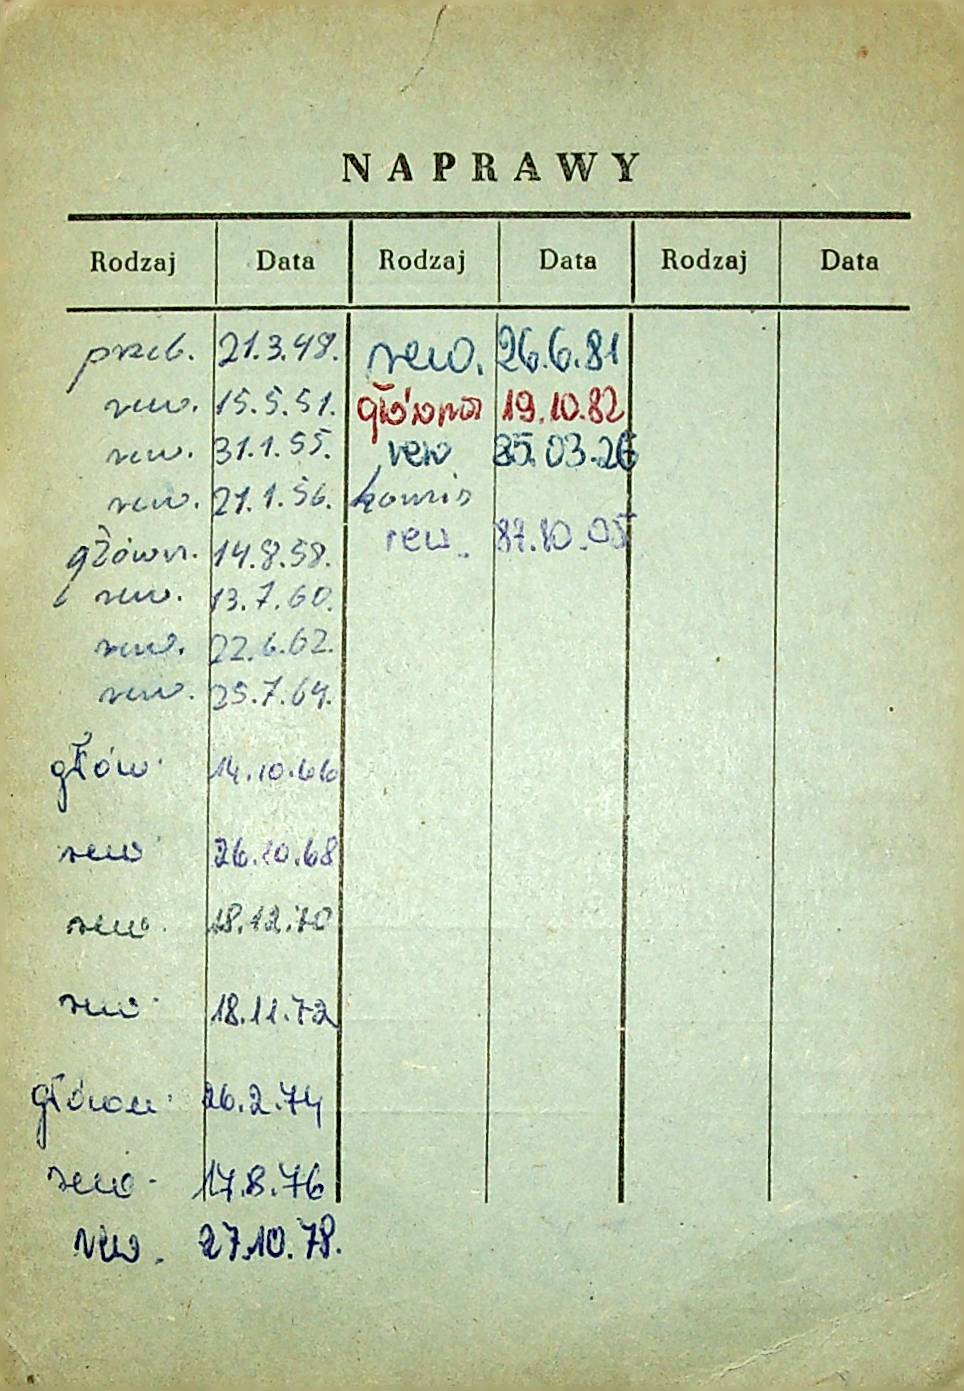 NAPRAWY
Rodzaj Data Rodzaj Data Rodzaj Data
przeb. 21.3.48.
rew. 15.5.51.
rew. 31.1.55.
rew. 21.1.56.
główn. 14.8.58.
rew. 13.7.60.
rew. 22.6.62.
rew. 25.7.64.
głów. 14.10.66
rew 26.10.68
rew. 18.12.70
rew. 18.11.72
główn. 26.2.74
rew. 17.8.76
rew. 27.10.78.
rew. 26.6.81
główna 19.10.82
rew 85.03.26
komis
rew. 87.10.05